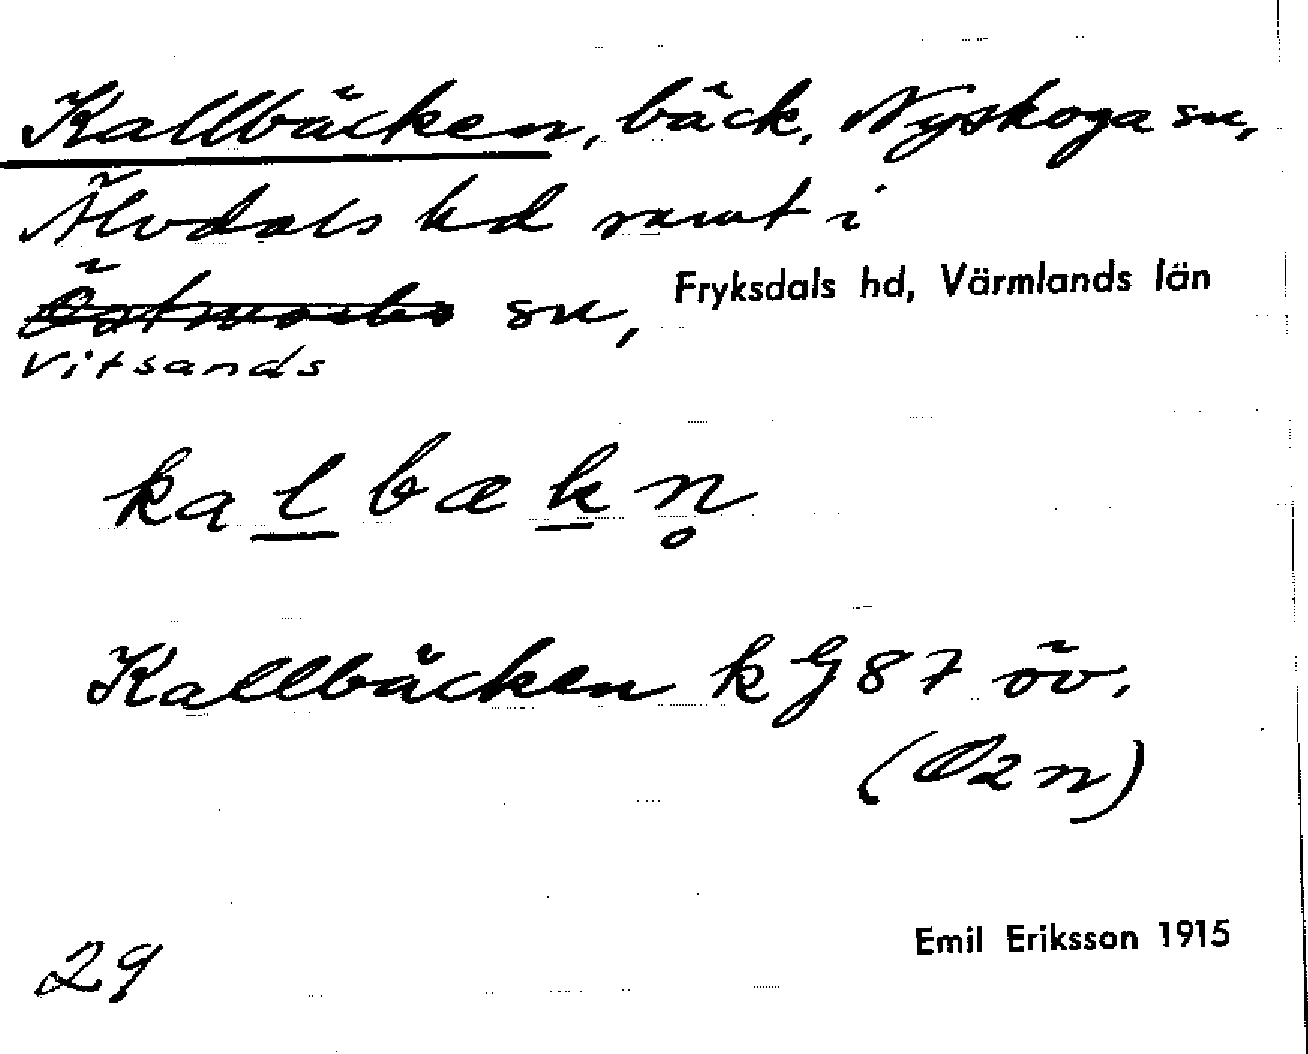 Kallbäcken, bäck, Nyskoga sn,
Älvdals hd samt i
Östmarks sn, Fryksdals hd, Värmlands län
Vitsands
kalbækn̥
Kallbäcken kG87 öv.
(O2n)
29
Emil Eriksson 1915